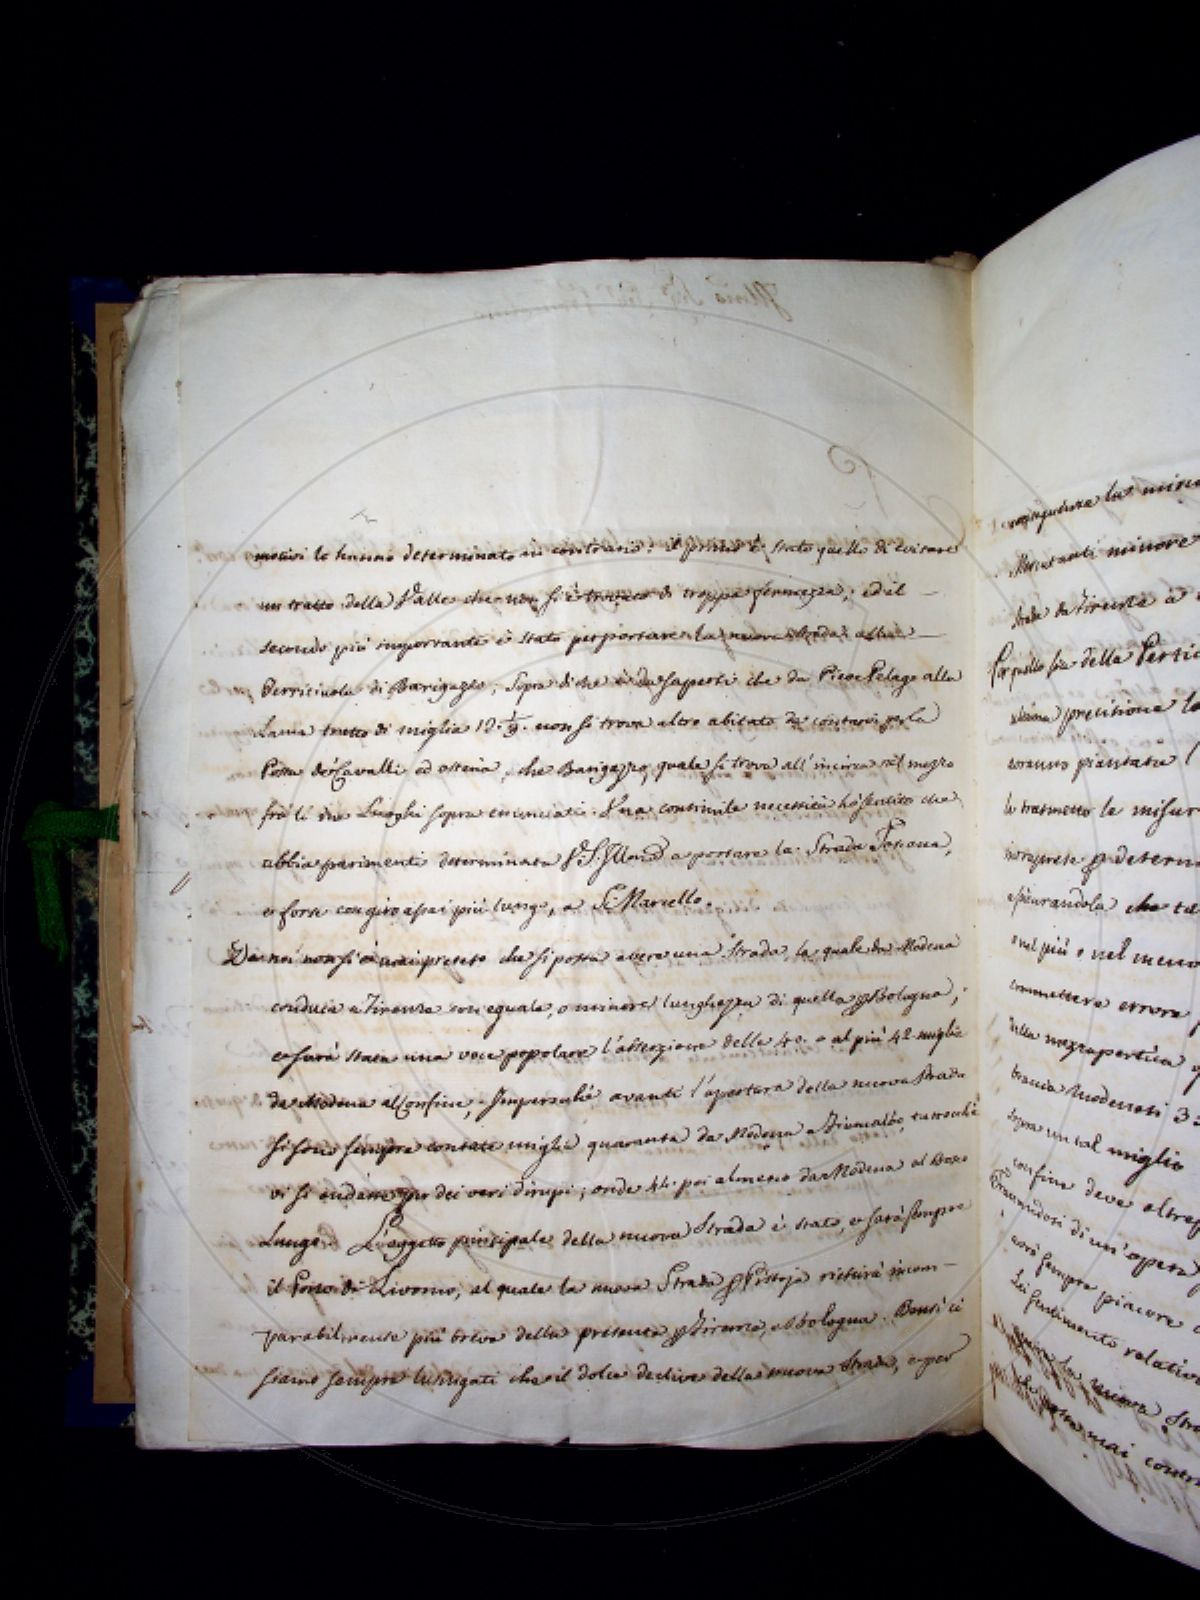 motivi lo hanno determinato in contrario: il primo è stato quello di evitare
un tratto della Valle che non si è trovato di troppa fermezza; ed il
secondo più importante è stato per portare la nuova strada alla
Serricciuola di Barigazzo; Sopra di che è da sapersi che da Pieve Pelago alla
Lama tratto di miglia 12. non si trova altro abitato da per la
Posta de Cavalli ed osteria, che Barigazzo, quale si trova all'incirca nel mezzo
frà li due Luoghi sopra enunciati. Una consimile necessità hò sentito che
abbia parimenti determinata a portare la Strada Toscana,
e forse con giro assai più lungo, a S. Marcello.
Da noi non si è mai preteso che si possa avere una Strada, la quale da Modena
conduca a Firenze con eguale, o minore lunghezza di quella p Bologna;
e sarà stata una voce popolare l'asserzione delle 40. o al più 42 miglia
da Modena al Confine, Imperochè avanti l'apertura della nuova Strada
si sono sempre contate miglia quaranta da Modena a Fiumalbo, tuttochè
vi si andasse per dei veri dirupi; onde 44 poi almeno da Modena al Bosco
Lungo. L'oggetto principale della nuova Strada è stato, e sarà sempre
il Porto di Livorno, al quale la nuova Strada p Pistoja riescirà incom-
parabilmente più breve della presente p Firenze, e Bologna. Bensì ci
siamo sempre lusingati che il dolce declive della nuova Strada, e per
conseguenza la
minore
strada da Firenze a
della Pertica
precisione la
vorranno piantata
le trasmetto le misure
p determi
che tal
o nel più o nel meno
commettere errore
della mezzapertica
braccia Modenesi
sopra un tal miglio
confine deve oltrep
di un'opera
sarà sempre piacere
sentimento relativo
la nuova Stra
mai contr